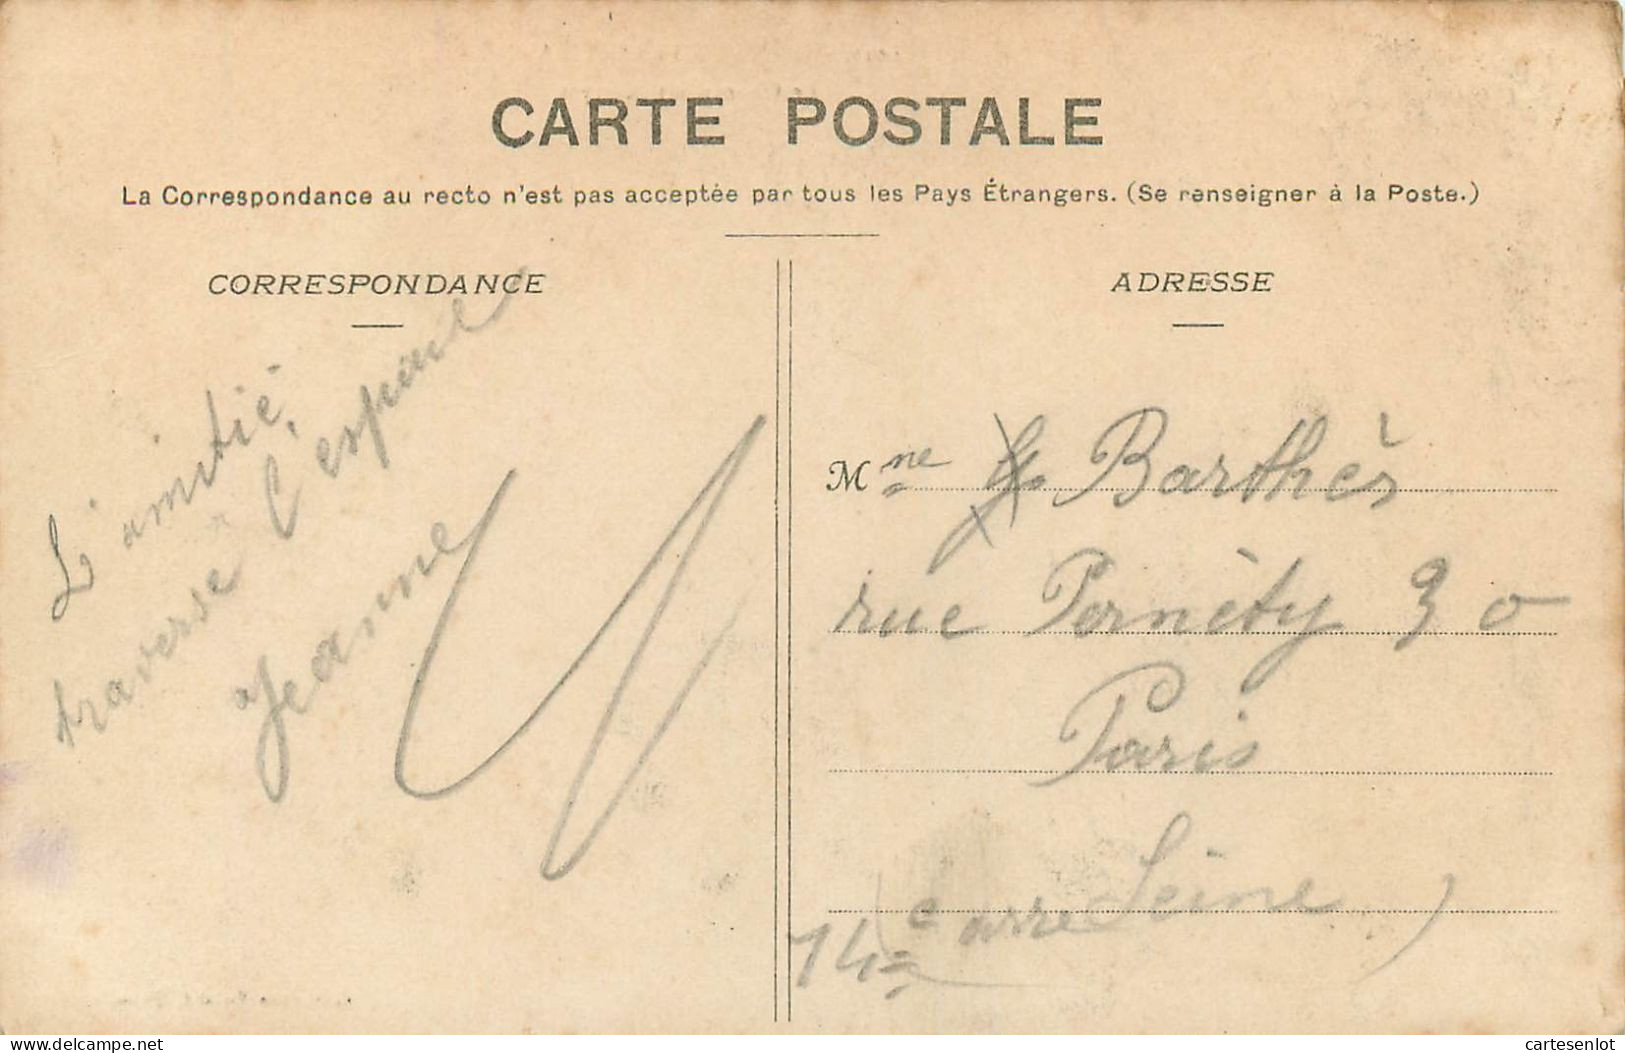 CARTE POSTALE
La Correspondance au recto n'est pas acceptée par tous les Pays Étrangers. (Se renseigner à la Poste.)
CORRESPONDANCE
L'amitié
traverse l'espace
Jeanne
ADRESSE
Mme Barthès
rue Pernèty 30
Paris
(Seine)
14e arre
cartesenlot